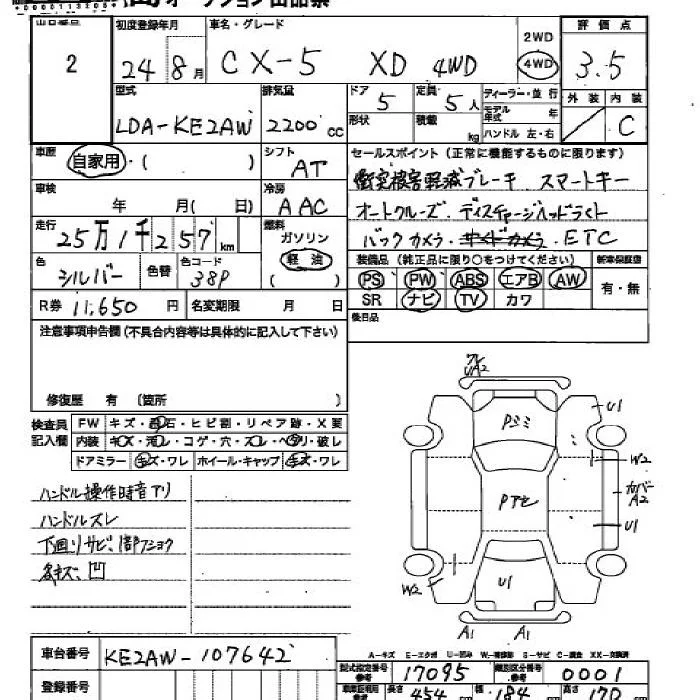 オークション出品票
出品番号 初度登録年月 車名・グレード 2WD 4WD 評価点
2 24 8月 CX-5 XD 4WD 3.5
型式 排気量 ドア 5 定員 5人 ディーラー・並行 外装 内装
LDA-KE2AW 2200cc 形状 積載 kg モデル年式 年 ハンドル 左・右 C
車歴 自家用・( ) シフト AT セールスポイント(正常に機能するものに限ります)
車検 年 月( 日) 冷房 AAC 衝突被害軽減ブレーキ スマートキー
オートクルーズ、ディスチャージヘッドライト
走行 25万1千257km 燃料 ガソリン 軽油 ( ) バックカメラ・サイドカメラ・ETC
色 シルバー 色替 色コード 38P 装備品(純正品に限り○をつけてください) 新車保証書
PS PW ABS エアB AW 有・無
R券 11,650円 名変期限 月 日 SR ナビ TV カワ
注意事項申告欄(不具合内容等は具体的に記入して下さい) 後日品
修復歴 有 (箇所 )
検査員記入欄 FW キズ・飛石・ヒビ割・リペア跡・X要
内装 キズ・汚レ・コゲ・穴・スレ・ヘタリ・破レ
ドアミラー キズ・ワレ ホイール・キャップ キズ・ワレ
ハンドル操作時音アリ
ハンドルスレ
下回リサビ、1部フショク
各キズ、凹
UA2
U1
W2
カバーA2
U1
U1
W2
A1 A1
車台番号 KE2AW-107642
A-キズ E-エクボ U-凹み W-補修跡 S-サビ C-腐食 XX-交換済
型式指定番号 参考 17095 類別区分番号 参考 0001
登録番号 長さ 454cm 幅 184cm 高さ 170cm